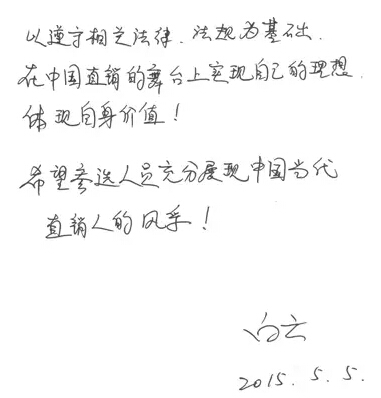 以遵守相关法律.法规为基础.
在中国直销的舞台上实现自己的理想.
体现自身价值！
希望参选人员充分展现中国当代
直销人的风采！
白云
2015.5.5.